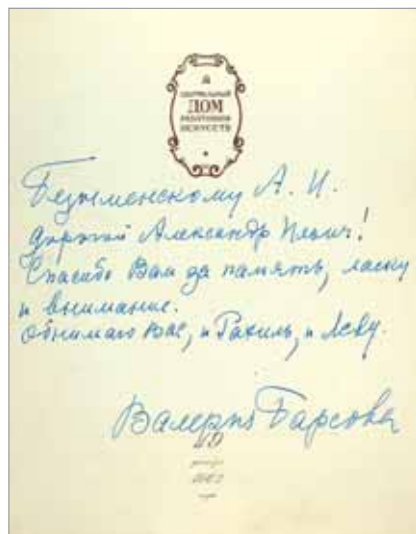 ЦЕНТРАЛЬНЫЙ
ДОМ
РАБОТНИКОВ
ИСКУССТВ
Безыменскому А. И.
Дорогой Александр Ильич!
Спасибо Вам за память, ласку
и внимание.
Обнимаю Вас, и Рахиль, и Леву.
Валерия Барсова